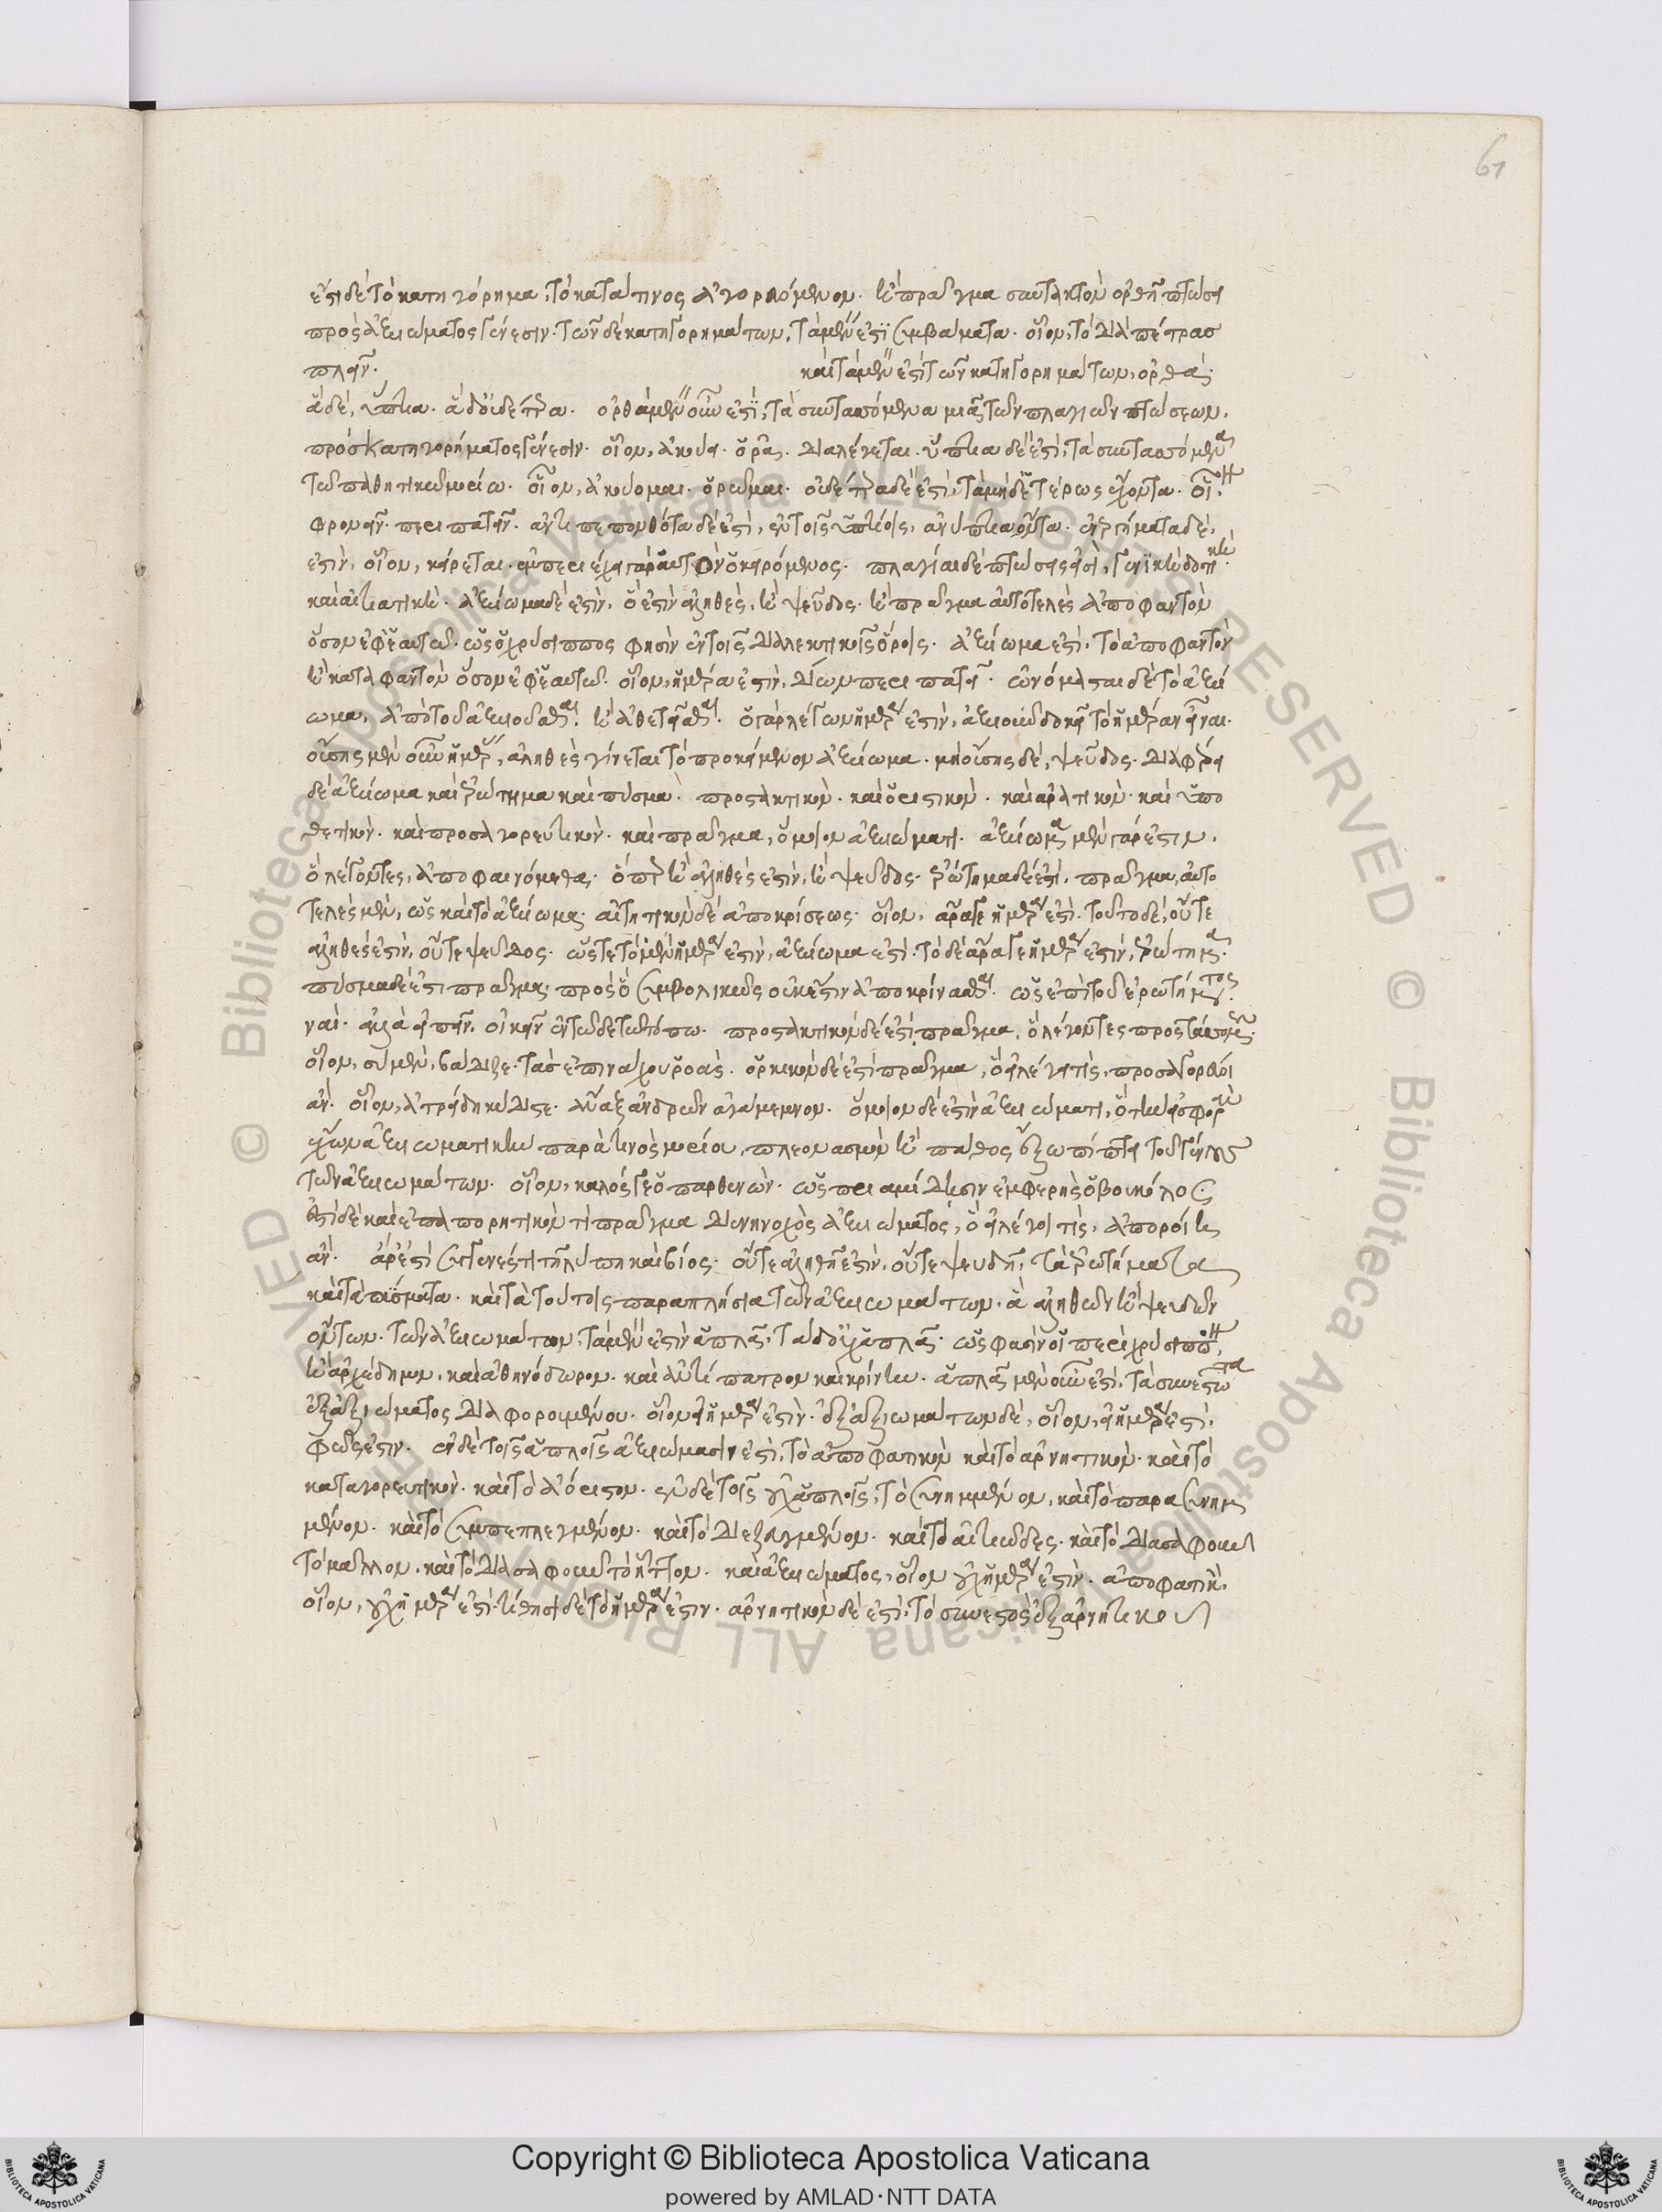 61
ἔστι δὲ τὸ κατηγόρημα, τὸ κατά τινος ἀγορευόμενον. ἢ πρᾶγμα συντακτὸν ὀρθῇ πτώσει
πρὸς ἀξιώματος γένεσιν. τῶν δὲ κατηγορημάτων, τὰ μέν ἐστι συμβάματα. οἷον, τὸ διὰ πέτρας
πλεῖν. καὶ τὰ μέν ἐστι τῶν κατηγορημάτων, ὀρθά.
ἃ δὲ, ὕπτια. ἃ δ' οὐδέτερα. ὀρθὰ μὲν οὖν ἐστι, τὰ συντασσόμενα μιᾷ τῶν πλαγίων πτώσεων.
πρὸς κατηγορήματος γένεσιν. οἷον, ἀκούει. ὁρᾷ. διαλέγεται. ὕπτια δέ ἐστι, τὰ συντασσόμενα
τῷ παθητικῷ μορίῳ. οἷον, ἀκούομαι. ὁρῶμαι. οὐδέτερα δέ ἐστι, τὰ μηδετέρως ἔχοντα. οἷον
φρονεῖν. περιπατεῖν. ἀντιπεπονθότα δέ ἐστι, ἐν τοῖς ὑπτίοις, ἀνύπτια ὄντα. ἐνεργήματα δέ,
ἐστιν, οἷον, κείρεται. ἐμπεριέχει γὰρ ἑαυτὸν ὁ κειρόμενος. πλάγιαι δὲ πτώσεις εἰσὶ, γενικὴ δοτικὴ
καὶ αἰτιατική. ἀξίωμα δέ ἐστιν, ὅ ἐστιν ἀληθὲς, ἢ ψεῦδος. ἢ πρᾶγμα αὐτοτελὲς ἀποφαντὸν
ὅσον ἐφ' ἑαυτῷ. ὡς ὁ χρύσιππος φησὶν ἐν τοῖς διαλεκτικοῖς ὅροις. ἀξίωμα ἐστὶ, τὸ ἀποφαντὸν
ἢ καταφαντὸν ὅσον ἐφ' ἑαυτῷ. οἷον, ἡμέρα ἐστὶν, δίων περιπατεῖ. ὠνόμασται δὲ τὸ ἀξί
ωμα, ἀπὸ τοῦ ἀξιοῦσθαι, ἢ ἀθετεῖσθαι. ὁ γὰρ λέγων ἡμέρα ἐστὶν, ἀξιοῦν δοκεῖ τὸ ἡμέραν εἶναι.
οὔσης μὲν οὖν ἡμέρας, ἀληθὲς γίνεται τὸ προκείμενον ἀξίωμα. μὴ οὔσης δὲ, ψεῦδος. διαφέρει
δὲ ἀξίωμα καὶ ἐρώτημα καὶ πύσμα. προστακτικὸν. καὶ ὁρκικὸν. καὶ ἀρατικὸν. καὶ ὑπο
θετικὸν. καὶ προσαγορευτικὸν. καὶ πρᾶγμα, ὅμοιον ἀξιώματι. ἀξίωμα μὲν γάρ ἐστιν,
ὃ λέγοντες, ἀποφαινόμεθα. ὅπερ ἢ ἀληθές ἐστιν, ἢ ψεῦδος. ἐρώτημα δέ ἐστι, πρᾶγμα, αὐτο
τελὲς μὲν, ὡς καὶ τὸ ἀξίωμα. αἰτητικὸν δὲ ἀποκρίσεως. οἷον, ἆρά γε ἡμέρα ἐστί. τοῦτο δὲ, οὔτε
ἀληθές ἐστιν, οὔτε ψεῦδος. ὥστε τὸ μὲν ἡμέρα ἐστὶν, ἀξίωμα ἐστὶ. τὸ δὲ ἆρά γε ἡμέρα ἐστὶν, ἐρώτημα.
πύσμα δέ ἐστι πρᾶγμα πρὸς ὃ συμβολικῶς οὐκ ἔστιν ἀποκρίνασθαι. ὡς ἐπὶ τοῦ ἐρωτήματος
ναί. ἀλλὰ εἰπεῖν, οἰκεῖν ἐν τῷδε τῷ τόπῳ. προστακτικὸν δέ ἐστι πρᾶγμα, ὃ λέγοντες προστάσσομεν.
οἷον, σὺ μὲν, βάδιζε τὰς ἐπ' ἰνάχου ῥοάς. ὁρκικὸν δέ ἐστι πρᾶγμα, ὃ εἰ λέγει τὶς, προσαγορεύοι
ἄν. οἷον, ἀτρείδη κύδιστε. ἄναξ ἀνδρῶν ἀγάμεμνον. ὅμοιον δέ ἐστὶν ἀξιώματι, ὃ τὴν ἐκφορὰν
ἔχων ἀξιωματικὴν παρά τινος μορίου, πλεονασμὸν ἢ πάθος ἔξω πίπτει τοῦ γένους
τῶν ἀξιωμάτων. οἷον, καλός γε ὁ παρθενών. ὡς πριαμίδησιν ἐμφερὴς ὁ βουκόλος
ἔστι δὲ καὶ ἐπαπορητικὸν τι πρᾶγμα διενηνοχὸς ἀξιώματος, ὃ εἰ λέγοι τὶς, ἀποροίη
ἄν. ἆρ' ἔστι συγγενές τι λύπη καὶ βίος. οὔτε ἀληθῆ ἐστὶν, οὔτε ψευδῆ, τὰ ἐρωτήματα
καὶ τὰ πύσματα. καὶ τὰ τούτοις παραπλήσια τῶν ἀξιωμάτων. ἃ ἀληθῶν ἢ ψευδῶν
ὄντων. τῶν ἀξιωμάτων, τὰ μέν ἐστιν ἁπλᾶ, τὰ δ' οὐχ ἁπλᾶ. ὥς φασιν οἱ περὶ χρύσιππον,
ἢ ἀρχέδημον. καὶ ἀθηνόδωρον. καὶ ἀντίπατρον καὶ κρίνιν. ἁπλᾶ μὲν οὖν ἐστὶ, τὰ συνεστῶτα
ἐξ ἀξιώματος διαφορουμένου. οἷον εἰ ἡμέρα ἐστὶν. ἐξ ἀξιωμάτων δὲ, οἷον, εἰ ἡμέρα ἐστὶ.
φῶς ἐστιν. ἐν δὲ τοῖς ἁπλοῖς ἀξιώμασιν ἐστὶ, τὸ ἀποφατικὸν καὶ τὸ ἀρνητικὸν. καὶ τὸ
καταγορευτικὸν. καὶ τὸ ἀόριστον. ἐν δὲ τοῖς οὐχ ἁπλοῖς, τὸ συνημμένον, καὶ τὸ παρασυνημ
μένον. καὶ τὸ συμπεπλεγμένον. καὶ τὸ διεζευγμένον. καὶ τὸ αἰτιῶδες. καὶ τὸ διασαφοῦν
τὸ μᾶλλον. καὶ τὸ διασαφοῦν τὸ ἧττον. καὶ ἀξιώματος, οἷον οὐχὶ ἡμέρα ἐστὶν. ἀποφατικὸν.
οἷον, οὐχὶ ἡμέρα ἐστὶ. τίθησι δὲ τὸ ἡμέρα ἐστιν. ἀρνητικὸν δέ ἐστι, τὸ συνεστὸς ἐξ ἀρνητικοῦ
Copyright © Biblioteca Apostolica Vaticana
powered by AMLAD·NTT DATA